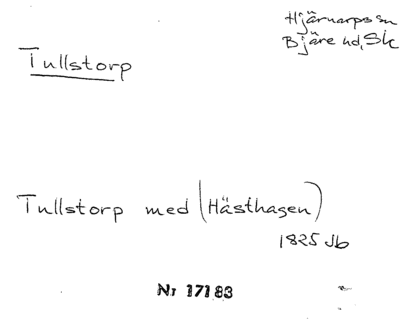 Hjärnarps sn
Bjäre hd, Sk
Tullstorp
Tullstorp med (Hästhagen)
1825 Jb
Nr 17183